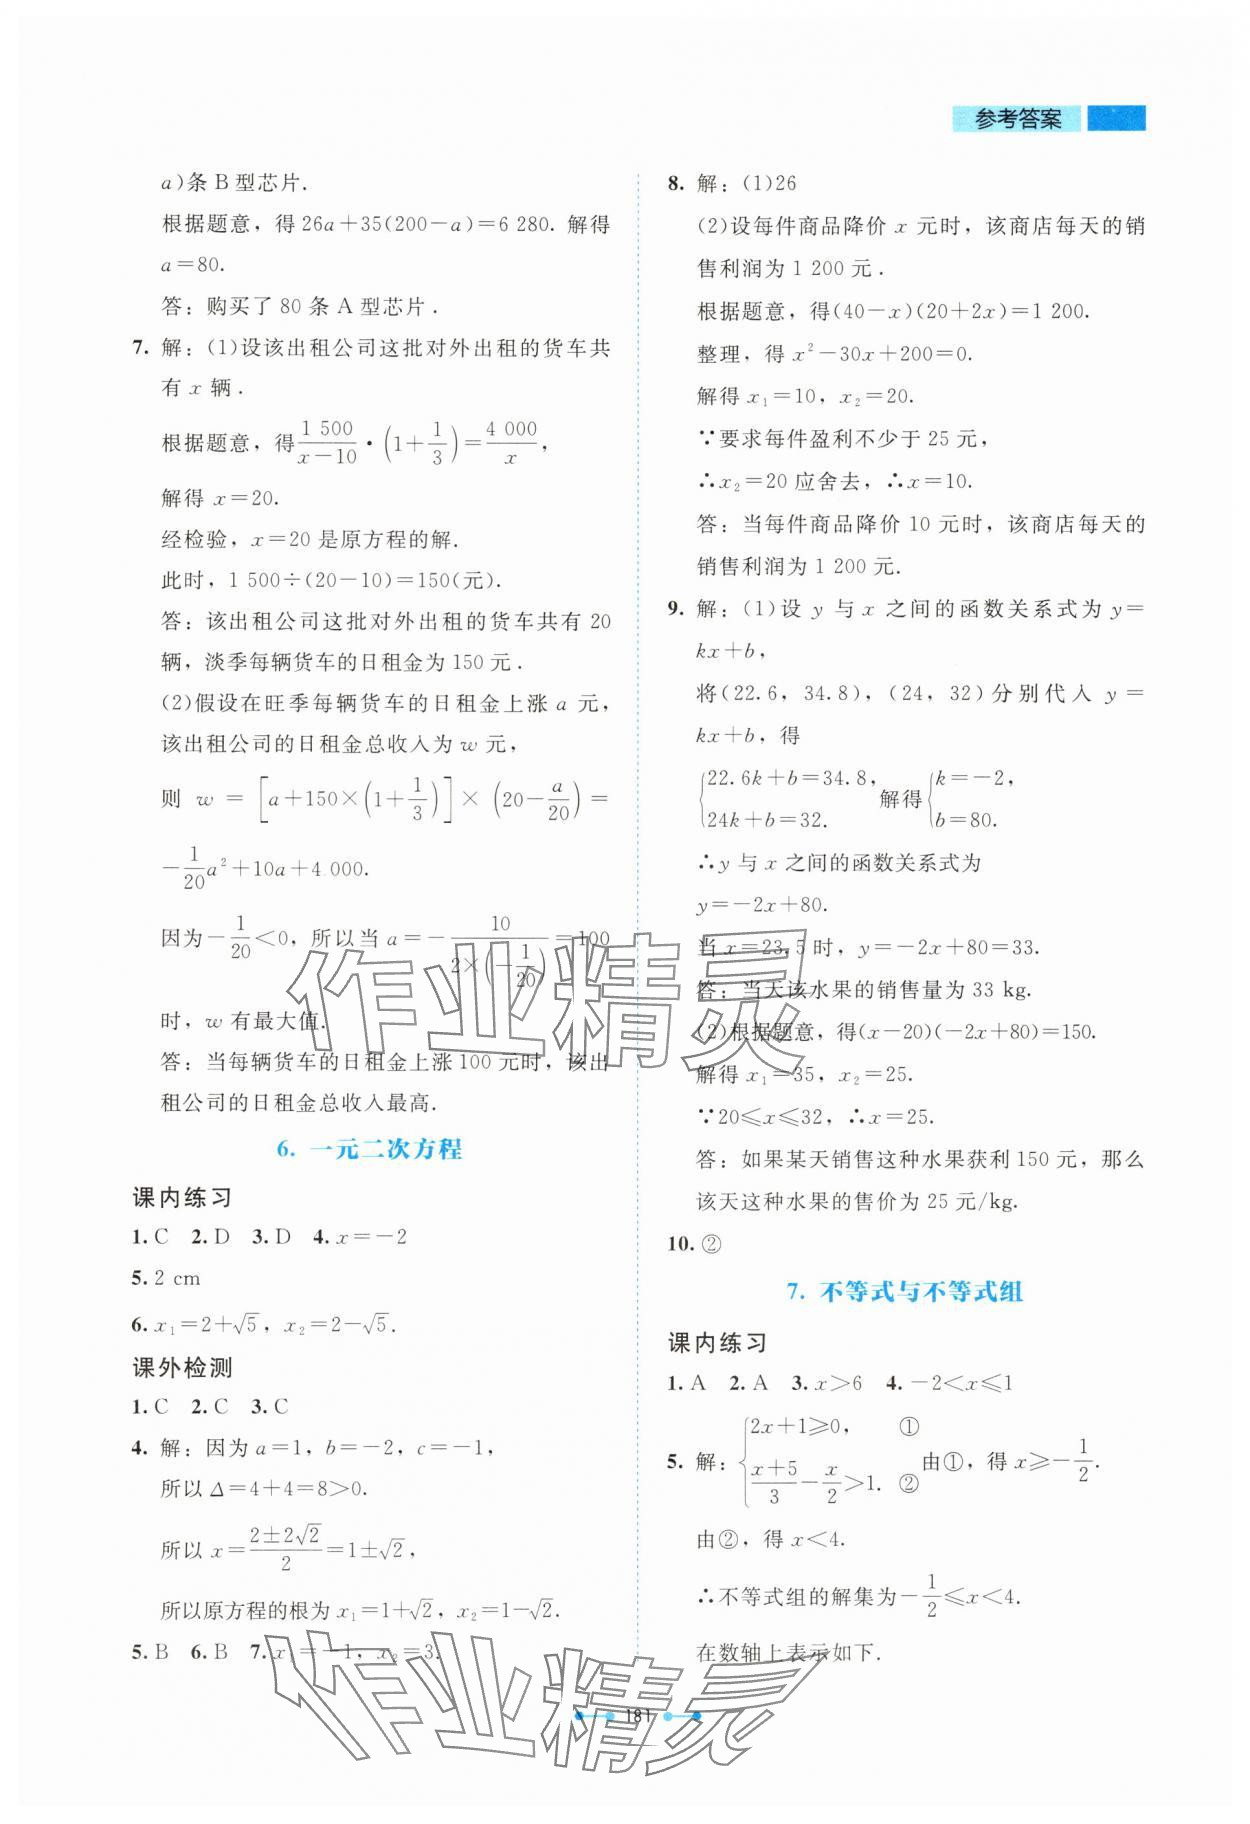 参考答案
a)条 B 型芯片.
根据题意，得 26a+35(200-a)=6 280. 解得
a=80.
答：购买了 80 条 A 型芯片.
7. 解：(1)设该出租公司这批对外出租的货车共
有 x 辆.
根据题意，得\frac{1 500}{x-10}•(1+\frac{1}{3})=\frac{4 000}{x},
解得 x=20.
经检验，x=20 是原方程的解.
此时，1 500÷(20-10)=150(元).
答：该出租公司这批对外出租的货车共有 20
辆，淡季每辆货车的日租金为 150 元.
(2)假设在旺季每辆货车的日租金上涨 a 元，
该出租公司的日租金总收入为 w 元，
则 w = [a+150×(1+\frac{1}{3})] × (20-\frac{a}{20}) =
-\frac{1}{20}a²+10a+4 000.
因为-\frac{1}{20}<0，所以当 a=-\frac{10}{2×(-\frac{1}{20})}=100
时，w 有最大值.
答：当每辆货车的日租金上涨 100 元时，该出
租公司的日租金总收入最高.
6. 一元二次方程
课内练习
1. C 2. D 3. D 4. x=-2
5. 2 cm
6. x₁=2+√5，x₂=2-√5.
课外检测
1. C 2. C 3. C
4. 解：因为 a=1，b=-2，c=-1，
所以 Δ=4+4=8>0.
所以 x=\frac{2±2√2}{2}=1±√2，
所以原方程的根为 x₁=1+√2，x₂=1-√2.
5. B 6. B 7. x₁=-1，x₂=3.
8. 解：(1)26
(2)设每件商品降价 x 元时，该商店每天的销
售利润为 1 200 元.
根据题意，得(40-x)(20+2x)=1 200.
整理，得 x²-30x+200=0.
解得 x₁=10，x₂=20.
∵要求每件盈利不少于 25 元，
∴x₂=20 应舍去，∴x=10.
答：当每件商品降价 10 元时，该商店每天的
销售利润为 1 200 元.
9. 解：(1)设 y 与 x 之间的函数关系式为 y=
kx+b，
将(22.6，34.8)，(24，32)分别代入 y=
kx+b，得
{22.6k+b=34.8， 24k+b=32. 解得{k=-2， b=80.
∴y 与 x 之间的函数关系式为
y=-2x+80.
当 x=23.5 时，y=-2x+80=33.
答：当天该水果的销售量为 33 kg.
(2)根据题意，得(x-20)(-2x+80)=150.
解得 x₁=35，x₂=25.
∵20≤x≤32，∴x=25.
答：如果某天销售这种水果获利 150 元，那么
该天这种水果的售价为 25 元/kg.
10. ②
7. 不等式与不等式组
课内练习
1. A 2. A 3. x>6 4. -2<x≤1
5. 解：{2x+1≥0， ① \frac{x+5}{3}-\frac{x}{2}>1. ② 由①，得 x≥-\frac{1}{2}.
由②，得 x<4.
∴不等式组的解集为-\frac{1}{2}≤x<4.
在数轴上表示如下.
181
作业精灵
作业精灵